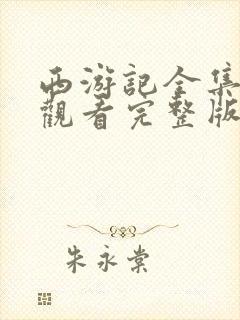 西游記全集
觀看完整版
朱永棠